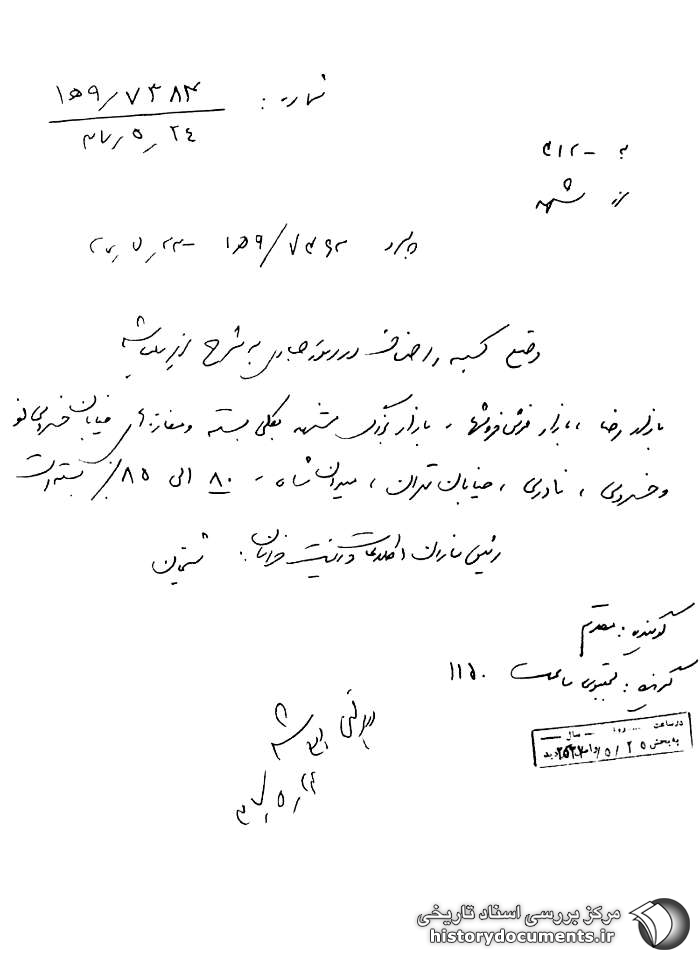 شماره : ۱ﻫ۹/۷۳۸۴
۲۴/۵/۳۷
به - ۳۱۲
از مشهد
پیرو ۷۳۶۲/ﻫ۱۹ - ۲۳/۵/۳۷
وضع کسبه و اصناف در روز جاری به شرح زیر میباشد
بازار رضا ، بازار فرش فروشها ، بازار بزرگ مشهد بکلی بسته و مغازه های خیابان خسروی نو
و خسروی ، نادری ، خیابان تهران ، میدان شاه - ۸۰ الی ۸۵٪ بسته است
رئیس سازمان اطلاعات و امنیت خراسان : شیخان
گوینده : مقدم
گیرنده : ساعت ۱۱۵۰
در ساعت ... روز ... سال
به بخش ۲۵/۵/ وارد گردید
۲۴/۵/۳۷
مرکز بررسی اسناد تاریخی
historydocuments.ir